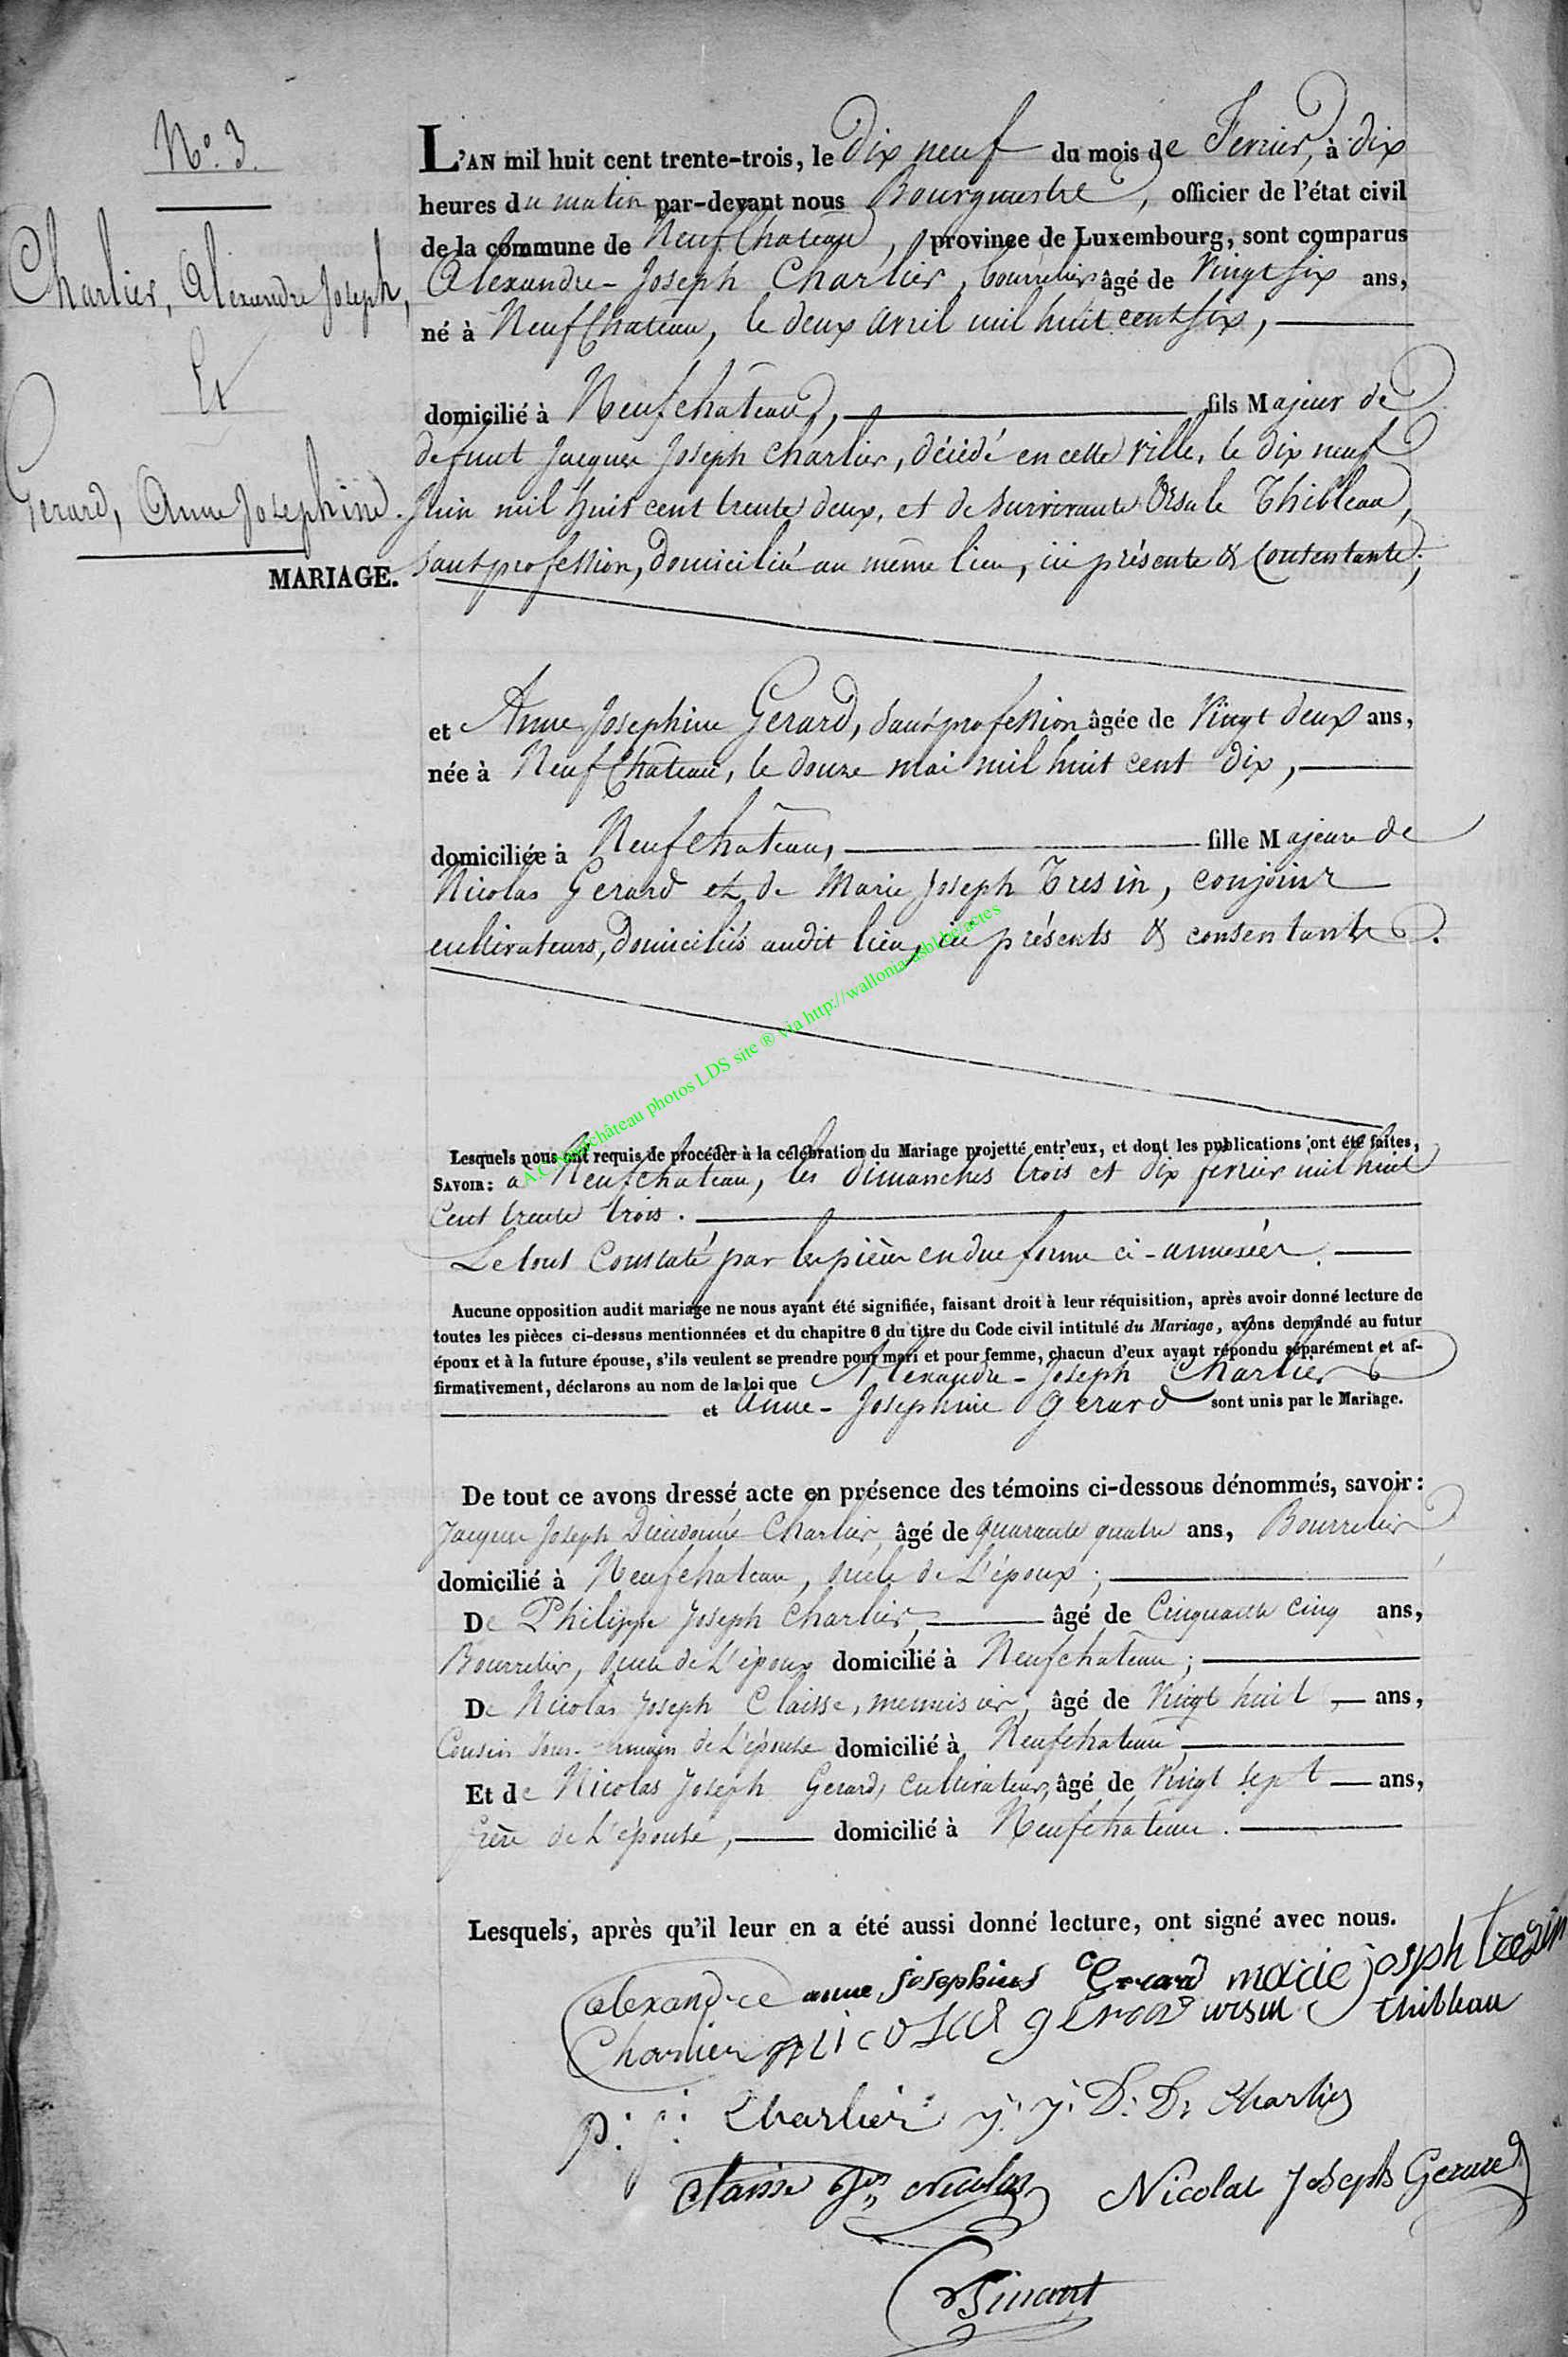 N°. 3.
Charlier, Alexandre Joseph,
Et
Gerard, Anne Josephine.
MARIAGE.
L'AN mil huit cent trente-trois, le Dix neuf du mois de Fevrier, à dix
heures du matin par-devant nous Bourgmestre, officier de l'état civil
de la commune de Neufchateau, province de Luxembourg, sont comparus
Alexandre-Joseph Charlier, bourrelier âgé de Vingt six ans,
né à Neufchateau, le deux avril mil huit cent six,
domicilié à Neufchâteau, fils Majeur de
défunt Jacques Joseph Charlier, décédé en cette ville, le dix neuf
Juin mil huit cent trente deux, et de survivante Ursule Thibleau,
sans profession, domiciliée au même lieu, ici présente & consentante;
et Anne Josephine Gerard, sans profession âgée de Vingt deux ans,
née à Neufchâteau, le douze mai mil huit cent dix,
domiciliée à Neufchateau, fille Majeure de
Nicolas Gerard et de Marie Joseph Tresin, conjoints
cultivateurs, domiciliés audit lieu, ici présents & consentants.
A.C. Neufchâteau photos LDS site ® via http://wallonia-asbl.be/actes
Lesquels nous ont requis de procéder à la célébration du Mariage projetté entr'eux, et dont les publications ont été faites,
SAVOIR: à Neufchateau, les dimanches trois et dix fevrier mil huit
Cent trente trois.
Le tout constaté par les pièces en due forme ci-annexées.
Aucune opposition audit mariage ne nous ayant été signifiée, faisant droit à leur réquisition, après avoir donné lecture de
toutes les pièces ci-dessus mentionnées et du chapitre 6 du titre du Code civil intitulé du Mariage, avons demandé au futur
époux et à la future épouse, s'ils veulent se prendre pour mari et pour femme, chacun d'eux ayant répondu séparément et af-
firmativement, déclarons au nom de la loi que Alexandre-Joseph Charlier
et Anne-Josephine Gerard sont unis par le Mariage.
De tout ce avons dressé acte en présence des témoins ci-dessous dénommés, savoir:
Jacques Joseph Dieudonné Charlier, âgé de quarante quatre ans, Bourrelier
domicilié à Neufchateau, oncle de L'époux;
De Philippe Joseph Charlier, âgé de Cinquante cinq ans,
Bourrelier, oncle de L'époux domicilié à Neufchateau;
De Nicolas Joseph Claisse, menuisier, âgé de Vingt huit ans,
Cousin sous-germain de L'épouse domicilié à Neufchateau
Et de Nicolas Joseph Gerard, cultivateur, âgé de Vingt sept ans,
frère de L'épouse, domicilié à Neufchateau.
Lesquels, après qu'il leur en a été aussi donné lecture, ont signé avec nous.
alexandre anne josephine Gerard marie josph tresin
Charlier nicolas gerard ursul thibleau
p. j. Charlier j. j. D. D. Charlier
Claisse Jph Nicolas Nicolas Joseph Gerard